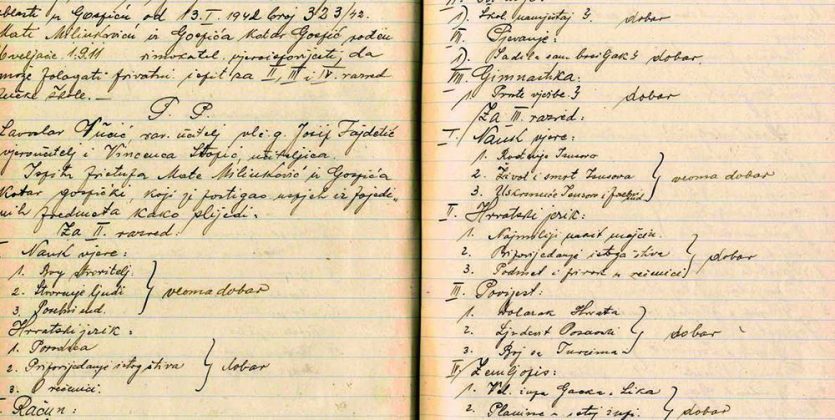 oblasti u Gospiću od 13. I. 1942 broj 323/42.
Mate Milinkoviću iz Gospića kotar Gospić rođen
veljače 1911 rimokatol. vjeroispovijesti, da
može polagati privatni ispit za II, III i IV. razred
pučke škole. —
T. P.
Lavoslav Vučić rav. učitelj vlč. g. Josip Fajdetić
vjeroučitelj i Vincenca Stopić, učiteljica.
Ispitu pristupa Mate Milinković iz Gospića
kotar gospićki, koji je postigao uspjeh iz pojedi„
nih predmeta kako slijedi:
Za II. razred:
Nauk vjere:
1. Bog Stvoritelj.
2. Stvorenje ljudi } veoma dobar
3.
Hrvatski jezik:
1. Porodica
2. Pripovijedanje istog štiva } dobar
3. O rečenici.
Račun:
1). Škol. namještaj }. dobar
Pjevanje:
1. Sad dobar.
VII. Gimnastika.
1. Proste vježbe } dobar
Za III. razred:
I. Nauk vjere:
1. Rođenje Isusovo
2. Život i smrt Isusova } veoma dobar
3. Uskrsnuće Isusovo i
II. Hrvatski jezik:
1. Najmiliji
2. Pripovijedanje istoga štiva } dobar
3. Predmet i prirok u rečenici
III. Povijest:
1. Dolazak Hrvata
2. Ljudevit Posavski } dobar
3. Boj sa Turcima
IV. Zemljopis:
1. Vel. župa Gacka i Lika
2. Planine u istoj župi. } dobar